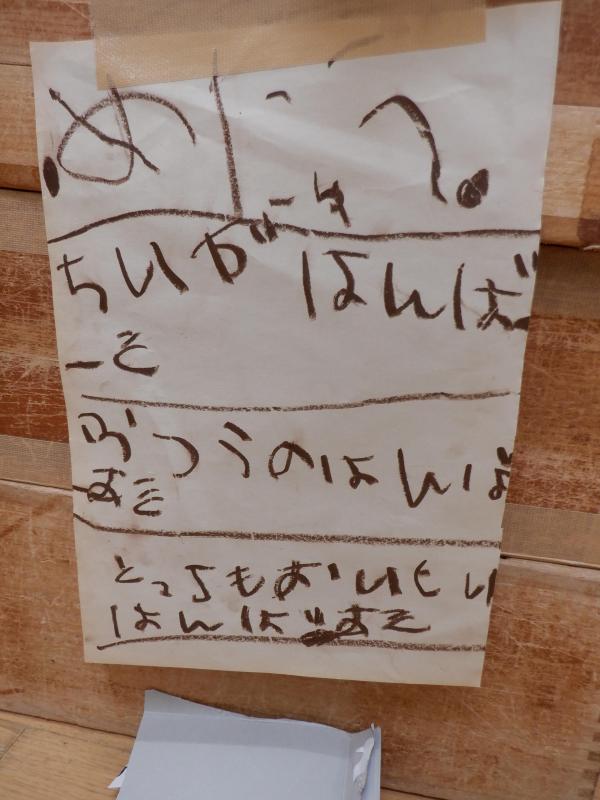 めにゅう
ちいが はんば
ーそ
ふつうのはんば
あそ
とってもおいしい
はんばあそ